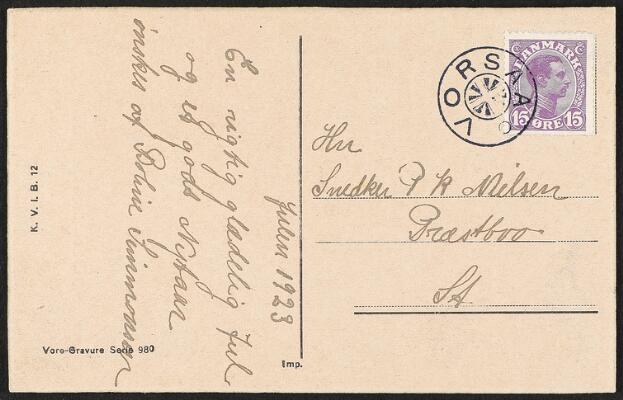 Julen 1923
En rigtig glædelig Jul
og et godt Nytaar
ønskes af Simmonsen
K. V. I. B. 12
Vore-Gravure Serie 980
Imp.
VORSAA
DANMARK
15 ØRE 15
Hr
Snedker P K Nielsen
Præstbro
St